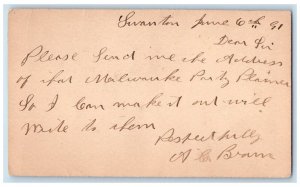 Swanton June 6th 91
Dear Sir
Please Send me the Address
of that Milwauke Party Planer
So I Can make it out will
Write to them
Respectfully
A C Brown